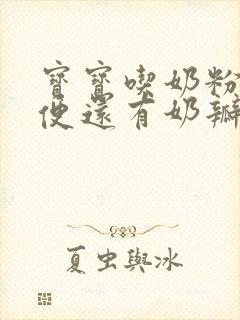 寶寶喫奶粉
便還有奶瓣
夏虫與冰